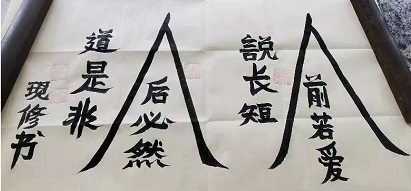 人
前若爱
說长短
人
后必然
道是非
現修书